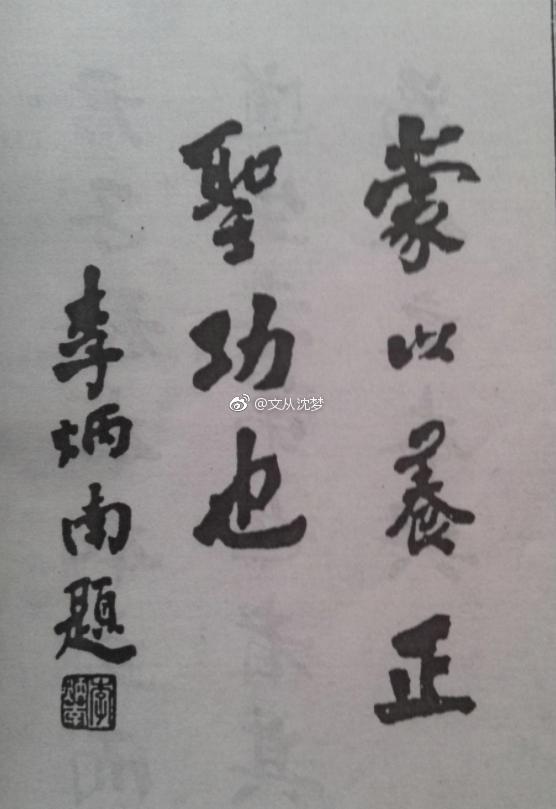 蒙以養正
聖功也
李炳南題
@文从沈梦